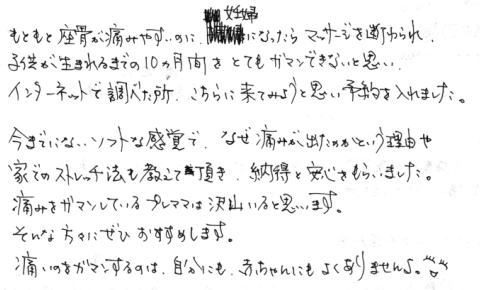 もともと座骨が痛みやすいのに、妊婦になったらマッサージを断わられ、
子供が生まれるまでの10ヵ月間をとてもガマンできないと思い、
インターネットで調べた所、こちらに来てみようと思い予約を入れました。
今までにないソフトな感覚で、なぜ痛みが出たのかという理由や
家でのストレッチ法も教えて頂き、納得と安心をもらいました。
痛みをガマンしているプレママは沢山いると思います。
そんな方々にぜひおすすめします。
痛いのをガマンするのは、自分にも、赤ちゃんにもよくありませんよ。